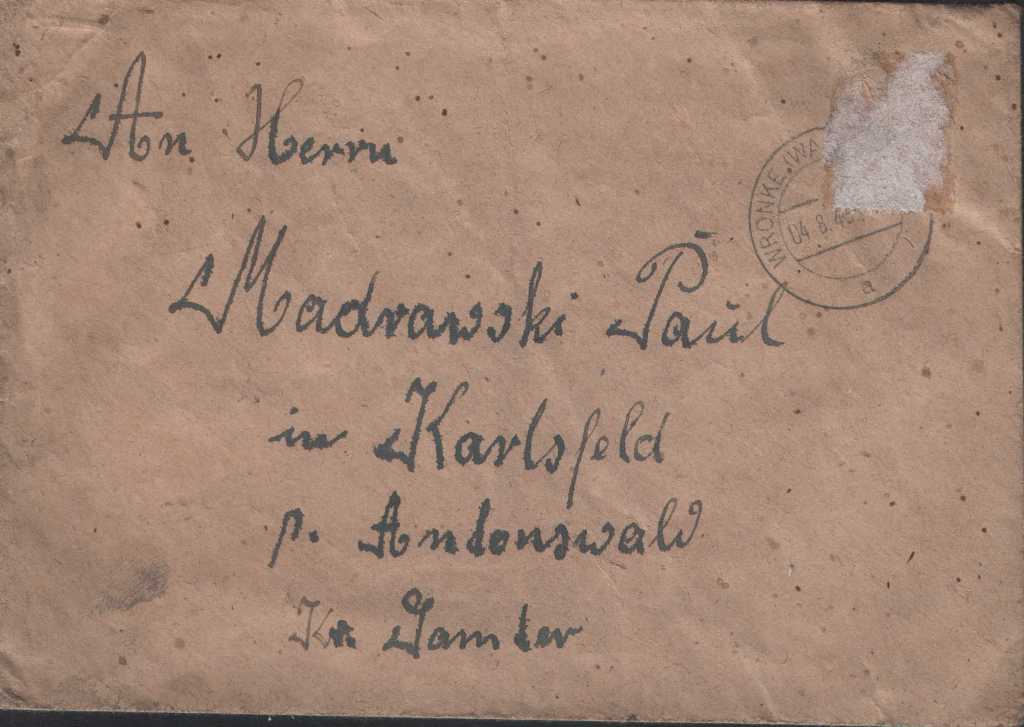 An Herrn
Madrawski Paul
in Karlsfeld
p. Antonswald
Kr. Samter
WRONKE (WA
04.8.43
a